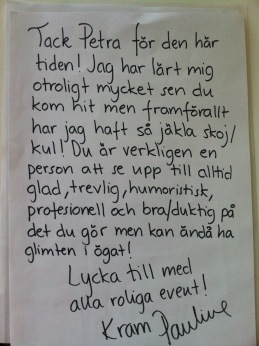 Tack Petra för den här
tiden! Jag har lärt mig
otroligt mycket sen du
kom hit men framförallt
har jag haft så jäkla skoj/
kul! Du är verkligen en
person att se upp till alltid
glad, trevlig, humoristisk,
professionell och bra/duktig på
det du gör men kan ändå ha
glimten i ögat!
Lycka till med
alla roliga event!
Kram Pauline